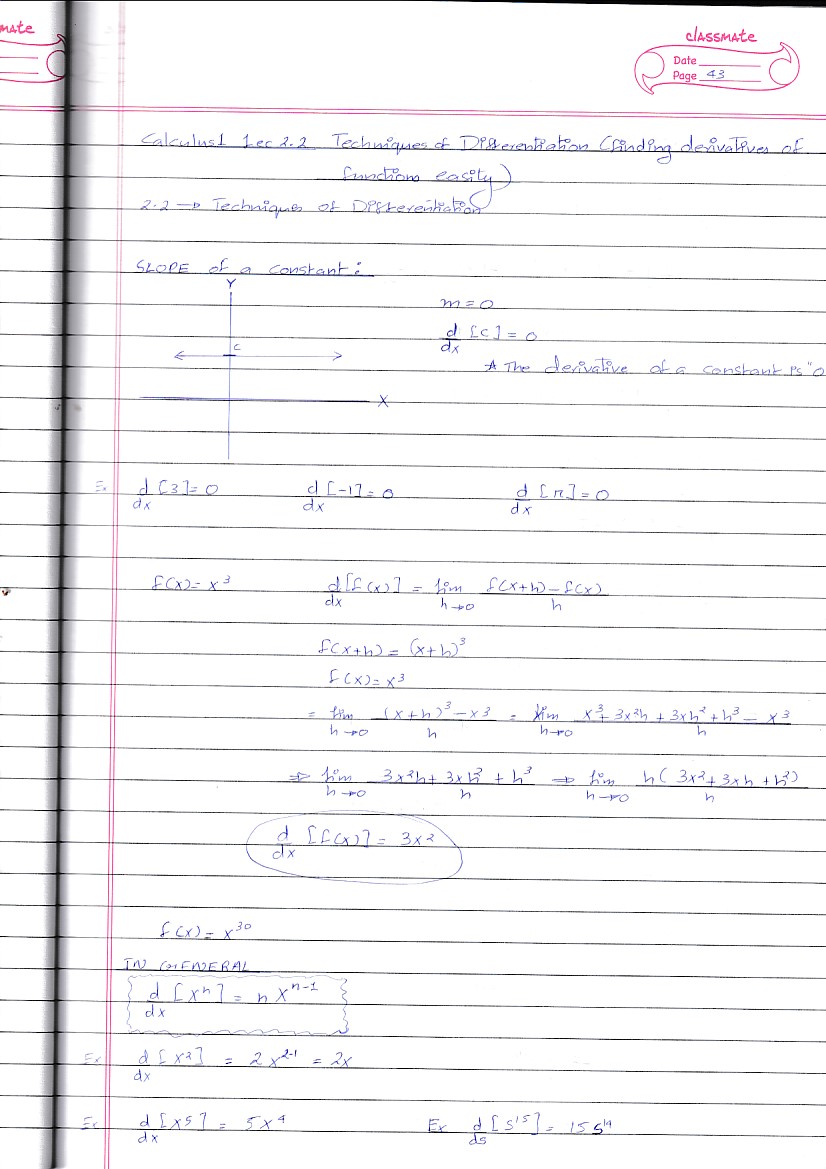 mate
classmate
Date
Page 43
Calculus1 Lec 2.2 Techniques of Differentiation (finding derivatives of
functions easity)
2.2 → Techniques of Differentiation
SLOPE of a constant:
Y
m = 0
d/dx [c] = 0
c
* The derivative of a constant is "0
X
Ex d/dx [3] = 0 d/dx [-1] = 0 d/dx [π] = 0
f(x) = x³ d/dx [f(x)] = lim h→0 f(x+h) - f(x) / h
f(x+h) = (x+h)³
f(x) = x³
= lim h→0 (x+h)³ - x³ / h = lim h→0 x³ + 3x²h + 3xh² + h³ - x³ / h
⇒ lim h→0 3x²h + 3xh² + h³ / h ⇒ lim h→0 h(3x² + 3xh + h²) / h
d/dx [f(x)] = 3x²
f(x) = x³⁰
IN GENERAL
d/dx [xⁿ] = n xⁿ⁻¹
Ex d/dx [x²] = 2x²⁻¹ = 2x
Ex d/dx [x⁵] = 5x⁴ Ex d/ds [s¹⁵] = 15s¹⁴